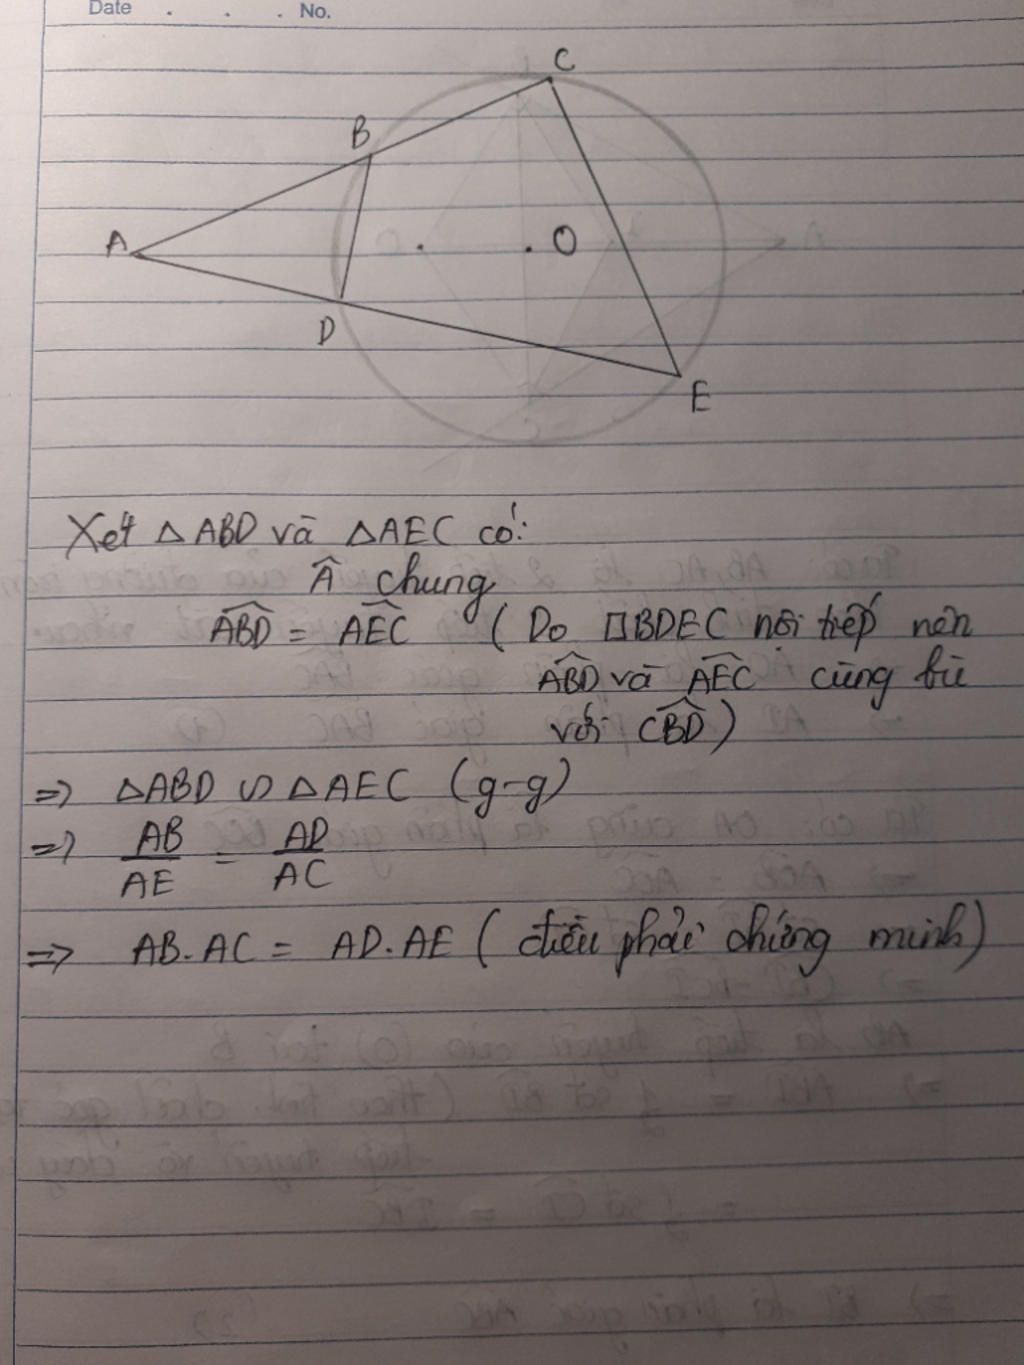 Date . . . No.
C
B
A
O
D
E
Xét △ABD và △AEC có:
Â chung
ABD̂ = AEĈ ( Do □BDEC nội tiếp nên
ABD̂ và AEĈ cùng bù
với CBD̂ )
=> △ABD ∽ △AEC (g-g)
=> AB/AE = AD/AC
=> AB.AC = AD.AE ( điều phải chứng minh)